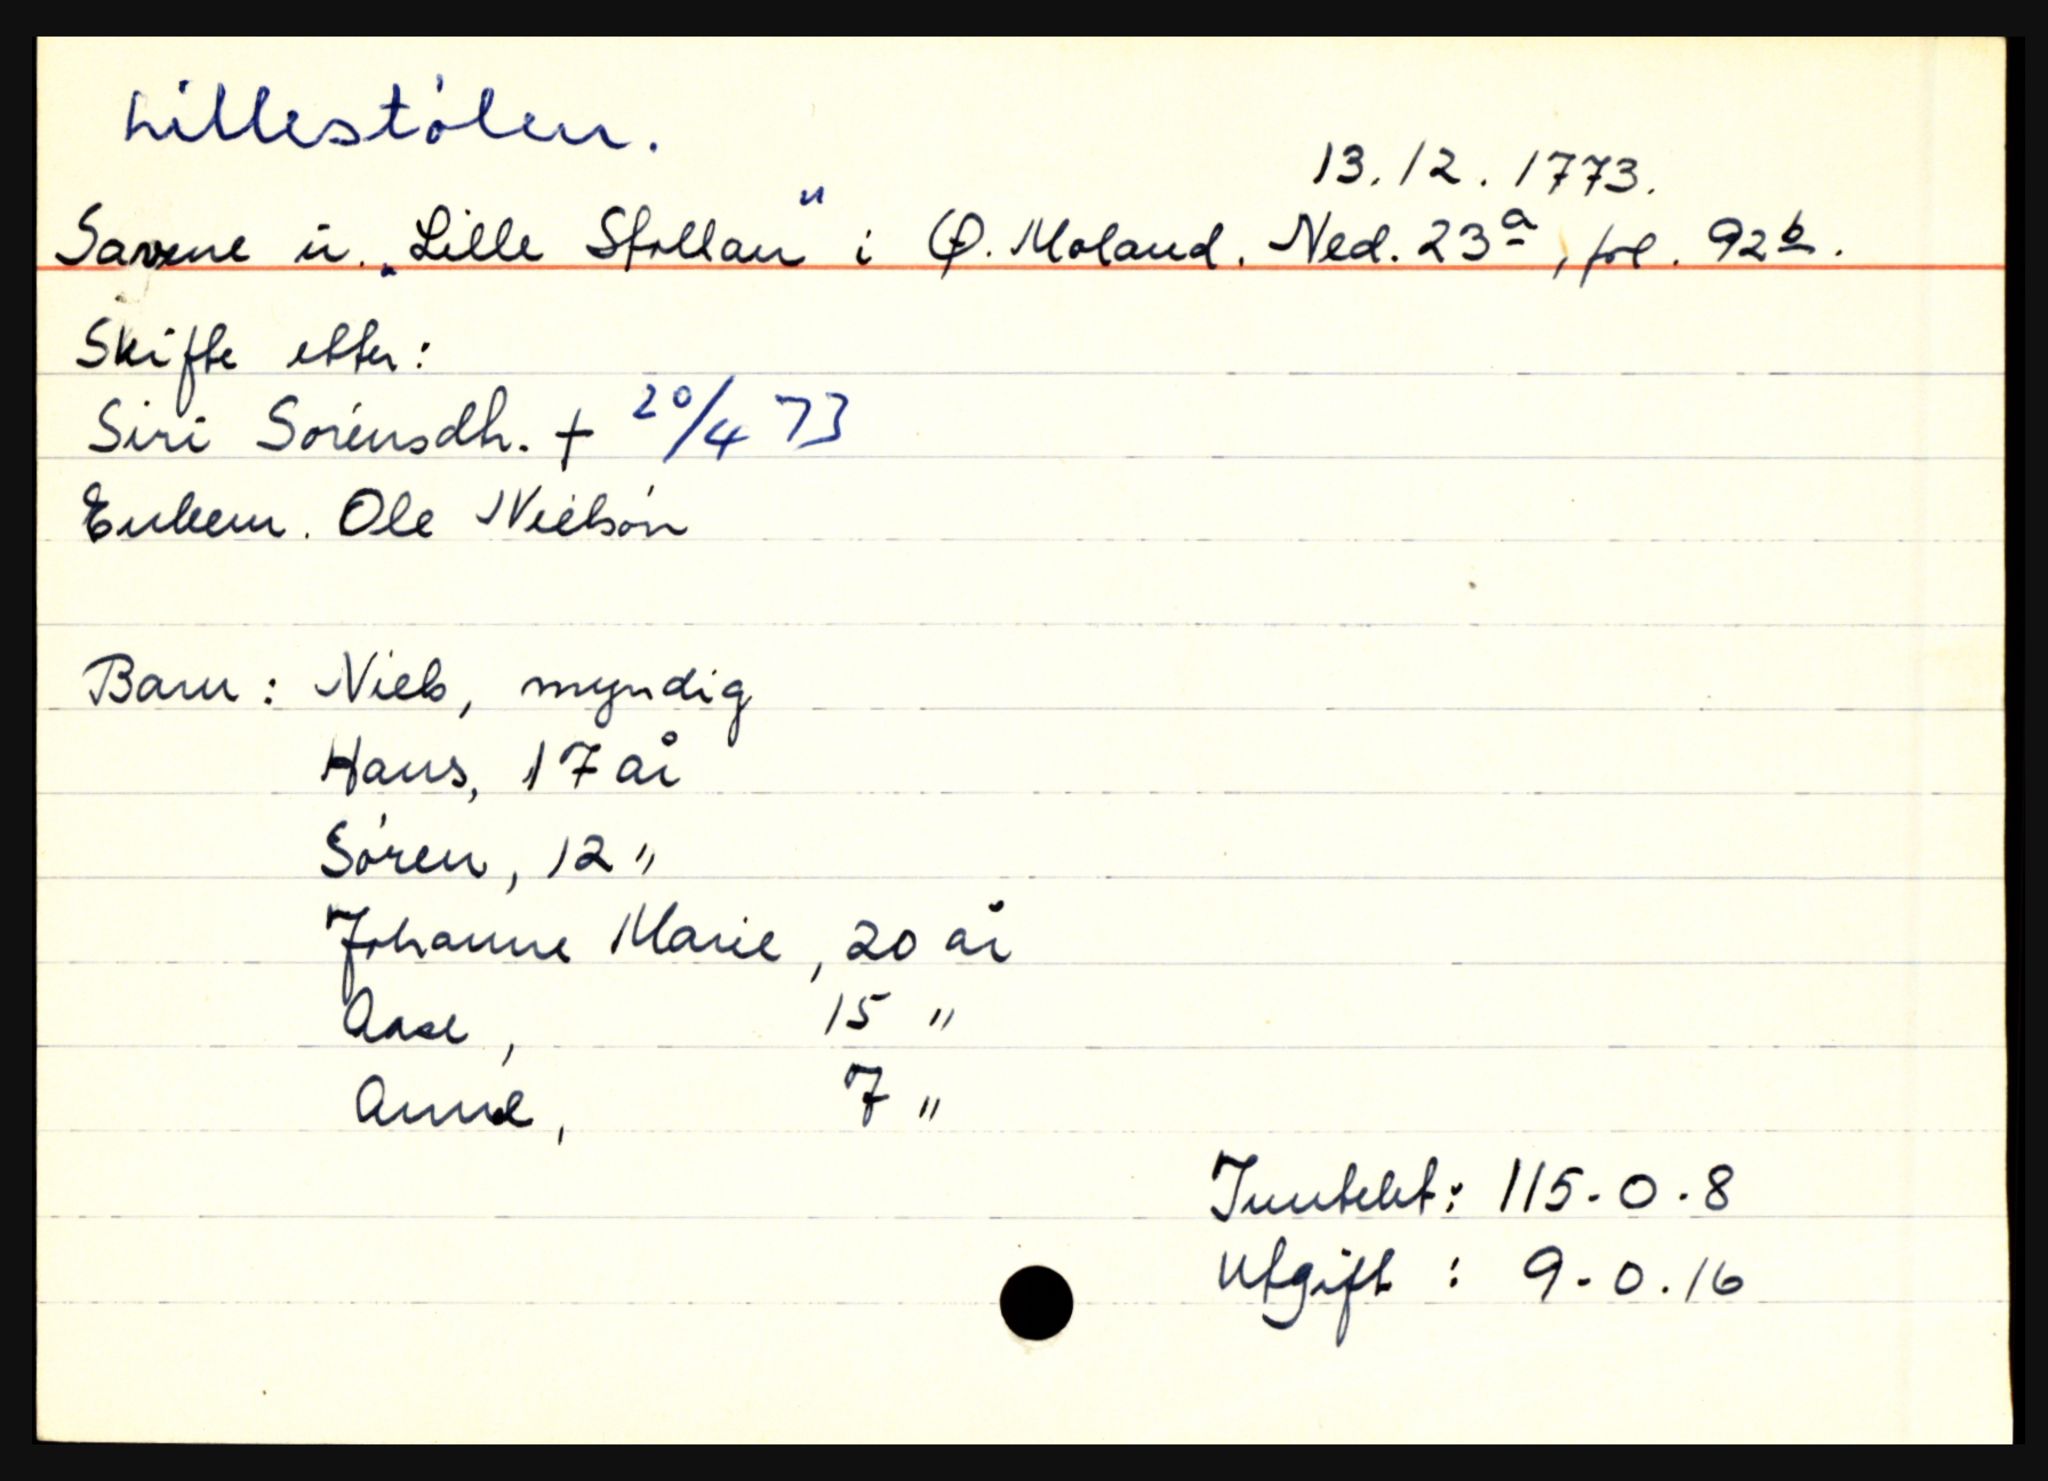 Lillestølen.
13.12.1773.
Savene u. "Lille Stollan" i Ø. Moland. Ned. 23a, fol. 92b.
Skifte etter:
Siri Sørensdh. + 20/4 73
Enkem. Ole Nielsøn
Barn: Niels, myndig
Hans, 17 år
Søren, 12 "
Johanne Marie, 20 år
Aase, 15 "
Anne, 7 "
Inntekt: 115-0-8
Utgift: 9-0.16